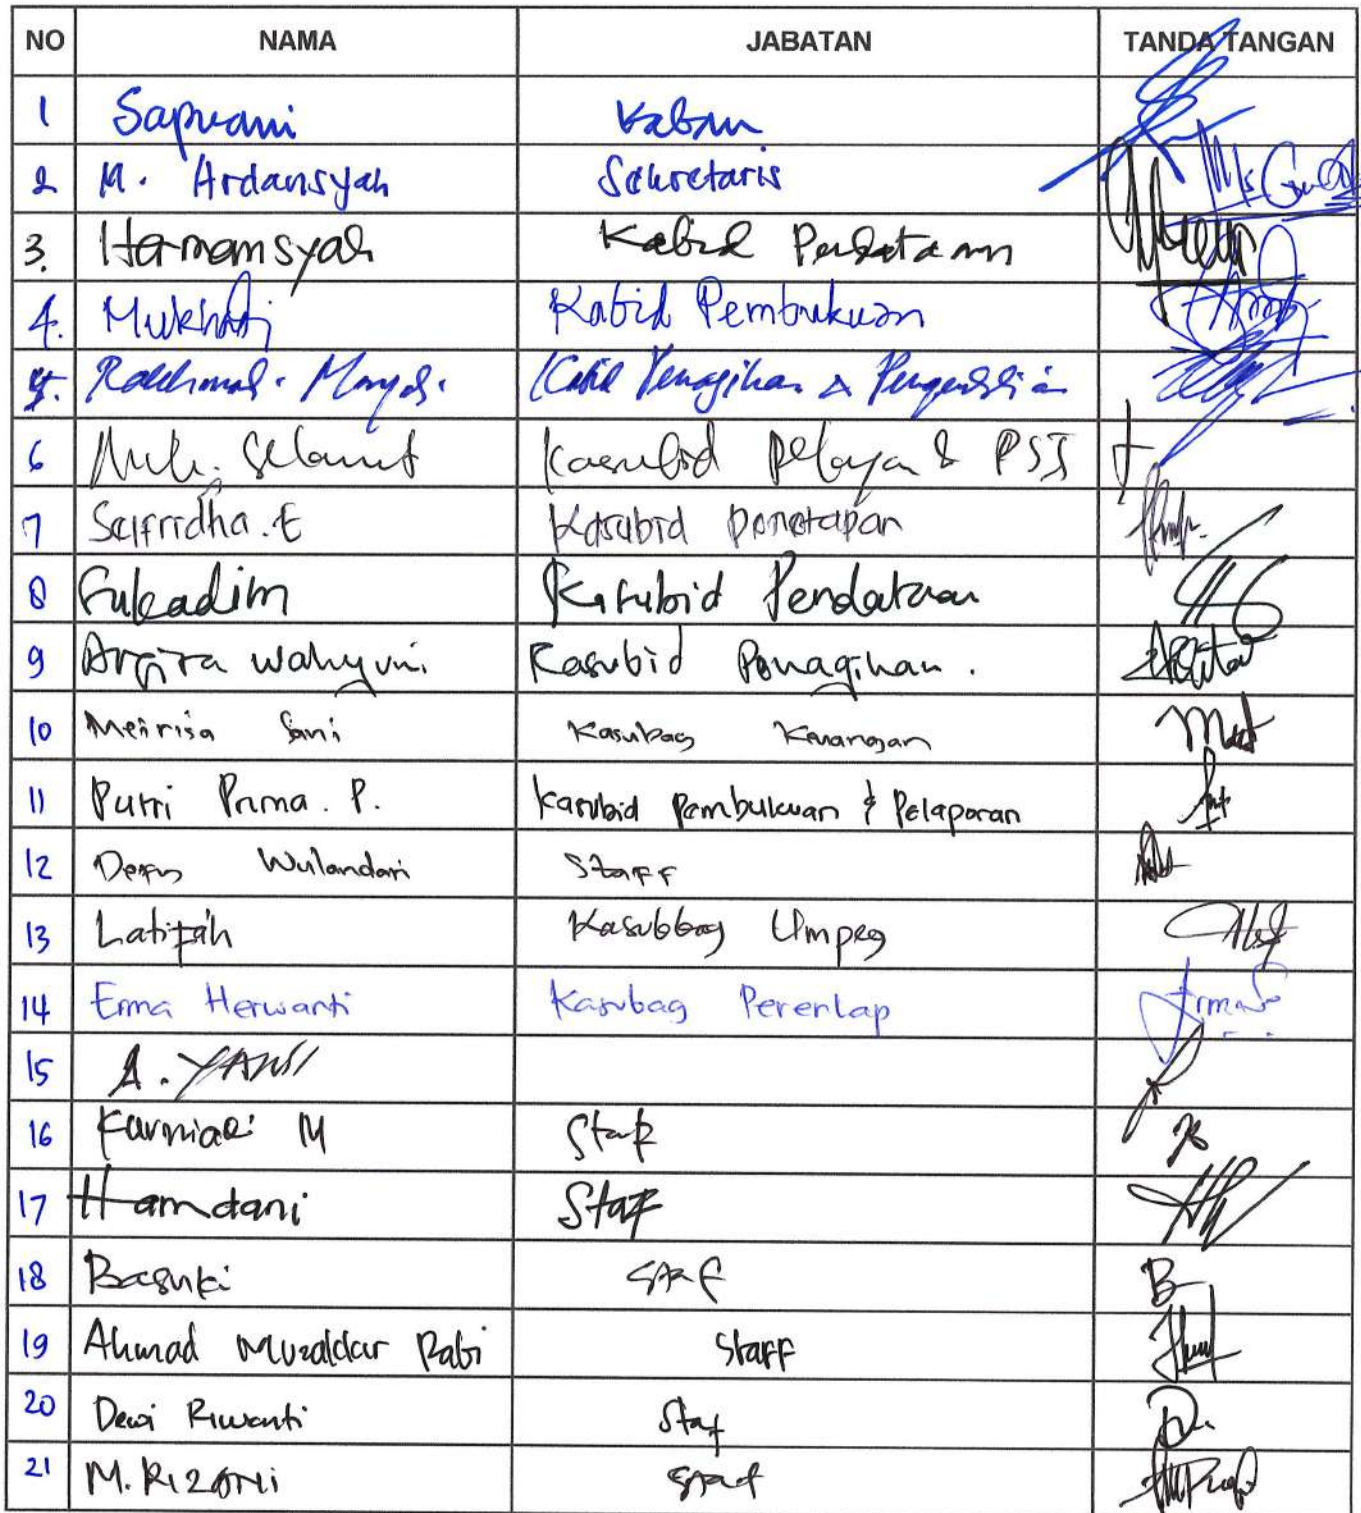 NO NAMA JABATAN TANDA TANGAN
1 Sapuani Kaban
2 M. Ardansyah Sekretaris
3. Hermansyah Kabid Pendataan
4. Mukhadi Kabid Pembukuan
5. Kabid Penagihan & Pengendalian
6 Muh. Selamet Kasubid Pelayan & PSI
7 Saifridha. E Kasubid Penetapan
8 Sukadim Kasubid Pendataan
9 Argira Wahyuni. Kasubid Penagihan.
10 Meirisa Sani Kasubag Keuangan
11 Putri Prima. P. Kasubid Pembukuan & Pelaporan
12 Wulandari Staff
13 Latifah Kasubbag Umpeg
14 Erma Herwanti Kasubag Perenlap
15 A. YANI
16 Kurniadi M Staf
17 Hamdani Staf
18 Basuki Staf
19 Ahmad Muzakkar Rabi Staff
20 Dewi Riwanti Staf
21 M. Rizoni Staf